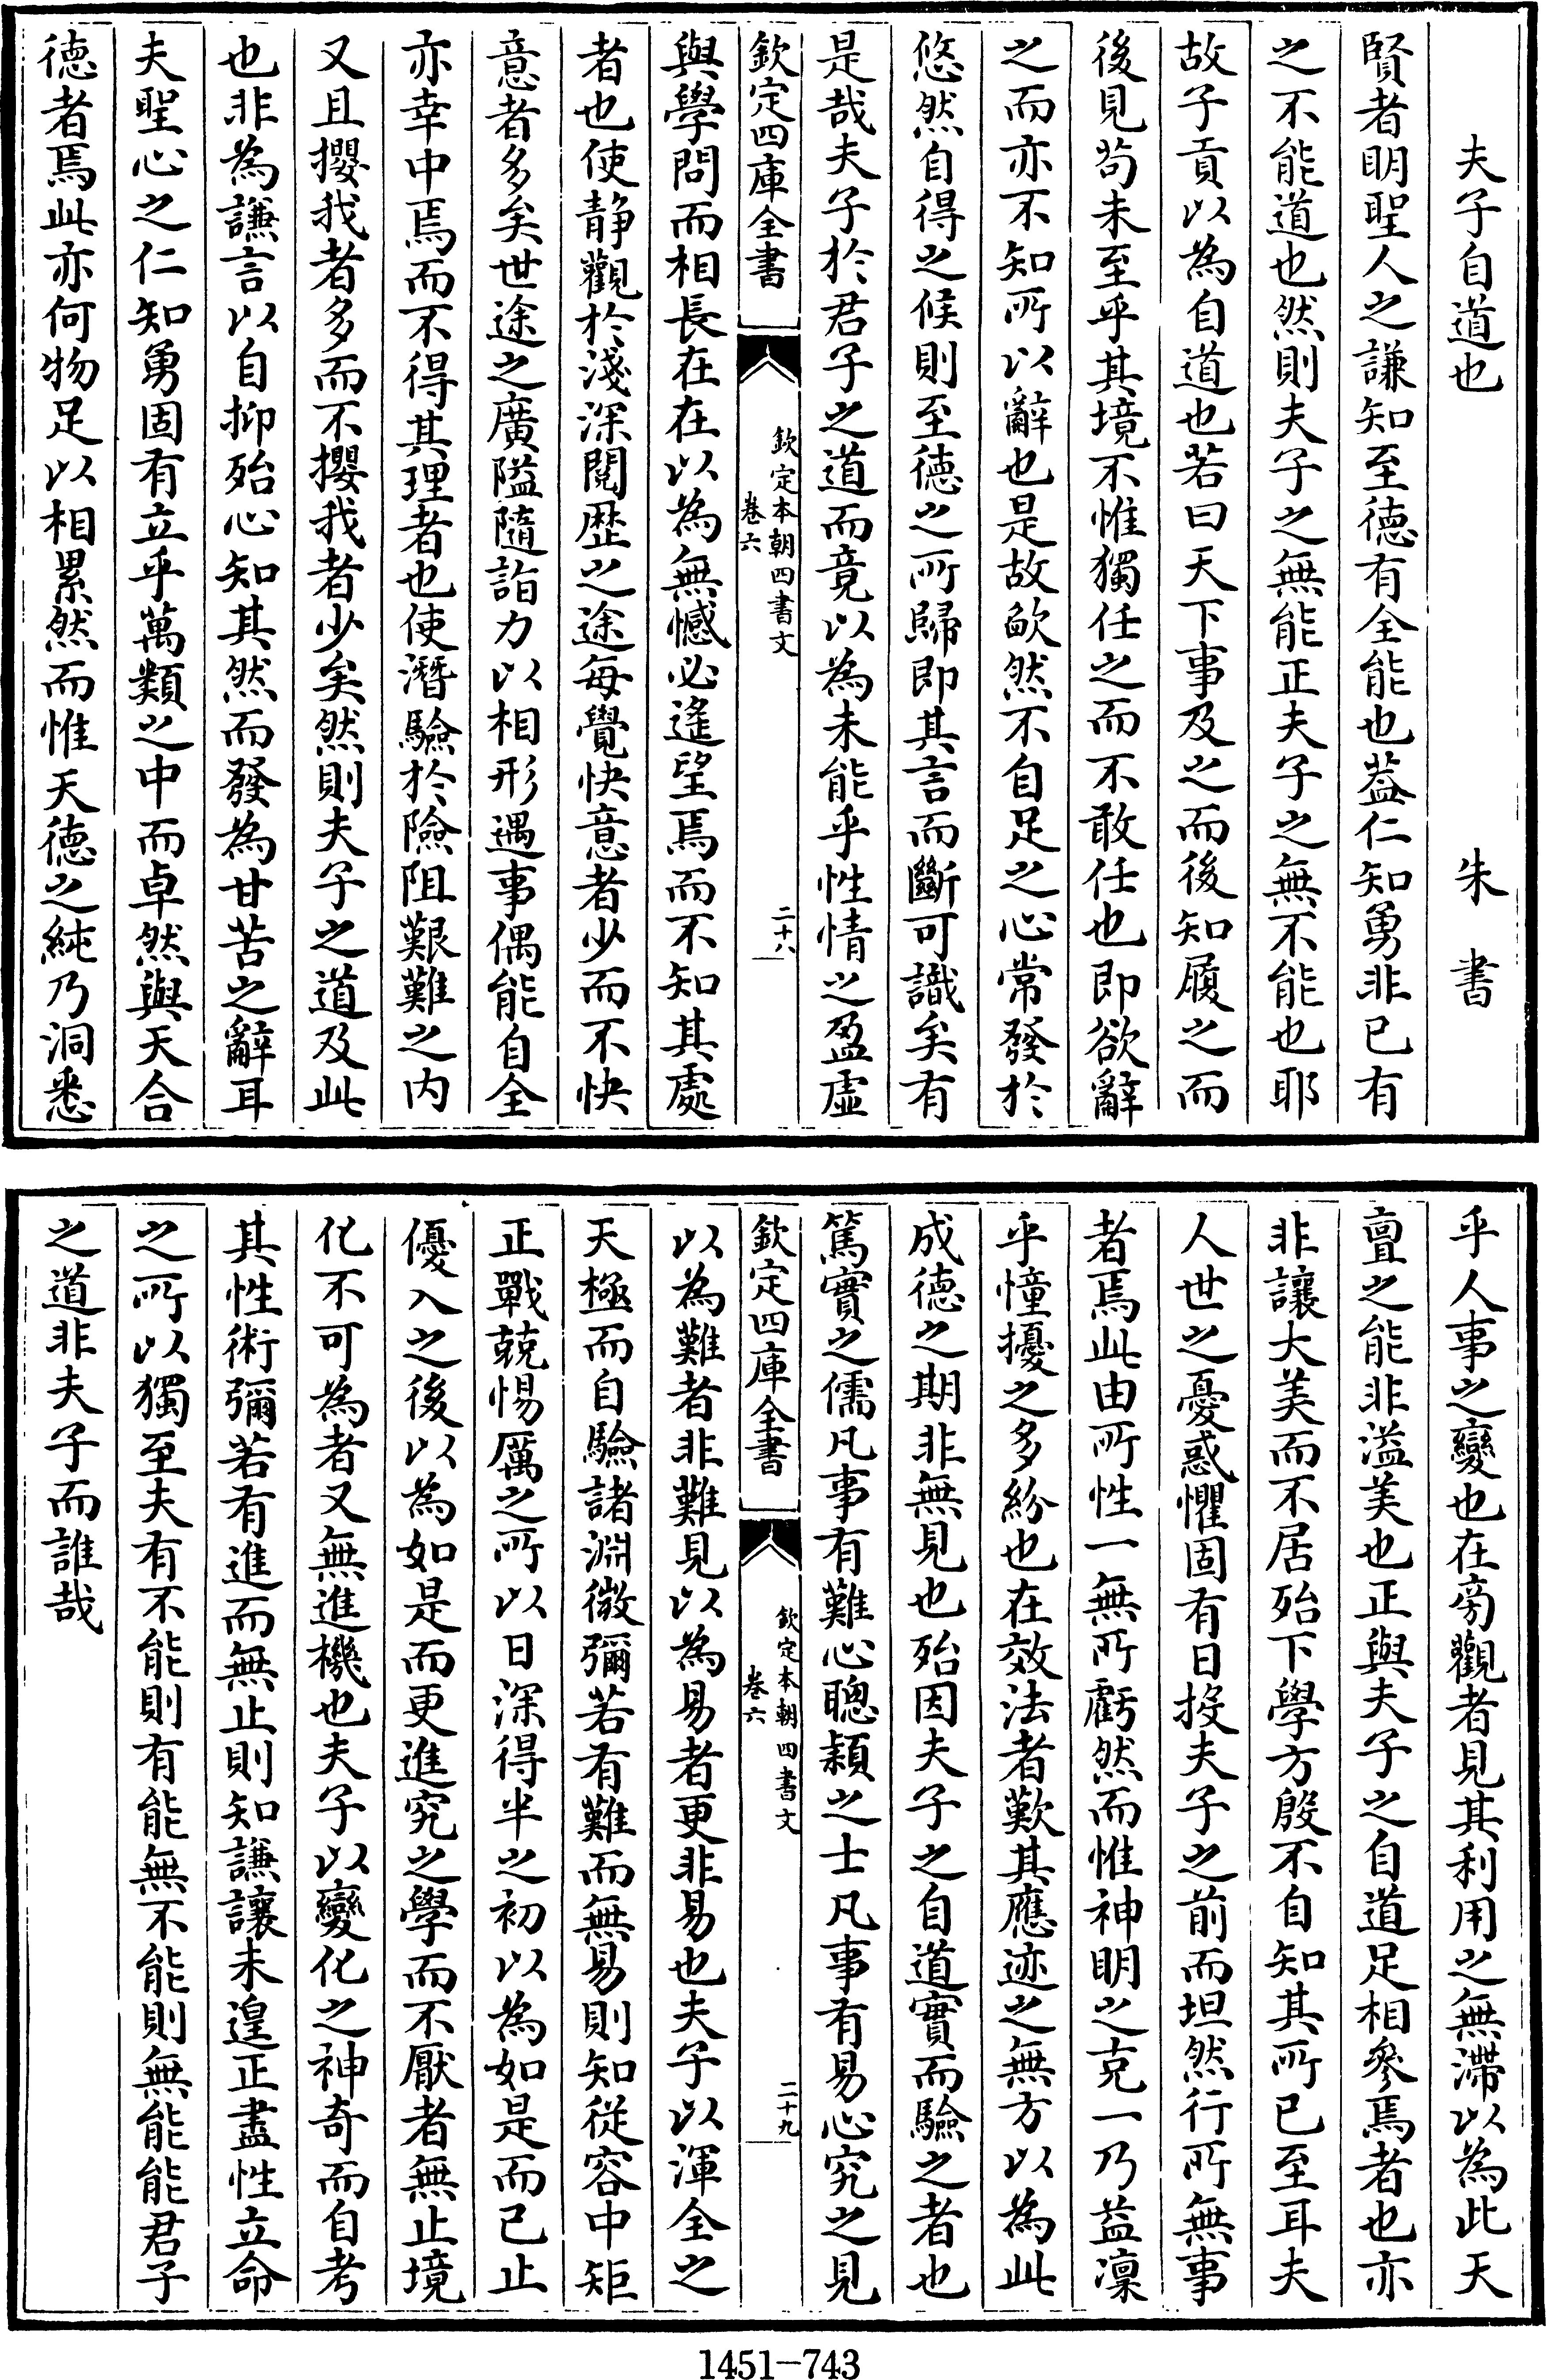 夫子自道也　朱書
賢者明聖人之謙知至德有全能也葢仁知勇非已有
之不能道也然則夫子之無能正夫子之無不能也耶
故子貢以為自道也若曰天下事及之而後知履之而
後見茍未至乎其境不惟獨任之而不敢任也即欲辭
之而亦不知所以辭也是故欿然不自足之心常發於
悠然自得之候則至德之所歸即其言而斷可識矣有
是哉夫子於君子之道而竟以為未能乎性情之盈虛
欽定四庫全書
欽定本朝四書文
卷六
二十八
與學問而相長在在以為無憾必遙望焉而不知其處
者也使静觀於淺深閱歴之途每覺快意者少而不快
意者多矣世途之廣隘隨詣力以相形遇事偶能自全
亦幸中焉而不得其理者也使潛驗於險阻艱難之内
又且攖我者多而不攖我者少矣然則夫子之道及此
也非為謙言以自抑殆心知其然而發為甘苦之辭耳
夫聖心之仁知勇固有立乎萬類之中而卓然與天合
德者焉此亦何物足以相累然而惟天德之純乃洞悉
乎人事之變也在旁觀者見其利用之無滯以為此天
亶之能非溢美也正與夫子之自道足相參焉者也亦
非讓大美而不居殆下學方殷不自知其所已至耳夫
人世之憂惑懼固有日投夫子之前而坦然行所無事
者焉此由所性一無所虧然而惟神明之克一乃益凜
乎憧擾之多紛也在效法者歎其應迹之無方以為此
成德之期非無見也殆因夫子之自道實而驗之者也
篤實之儒凡事有難心聰穎之士凡事有易心究之見
欽定四庫全書
欽定本朝四書文
卷六
二十九
以為難者非難見以為易者更非易也夫子以渾全之
天極而自驗諸淵微彌若有難而無易則知從容中矩
正戰兢惕厲之所以日深得半之初以為如是而已止
優入之後以為如是而更進究之學而不厭者無止境
化不可為者又無進機也夫子以變化之神奇而自考
其性術彌若有進而無止則知謙讓未遑正盡性立命
之所以獨至夫有不能則有能無不能則無能能君子
之道非夫子而誰哉
1451-743